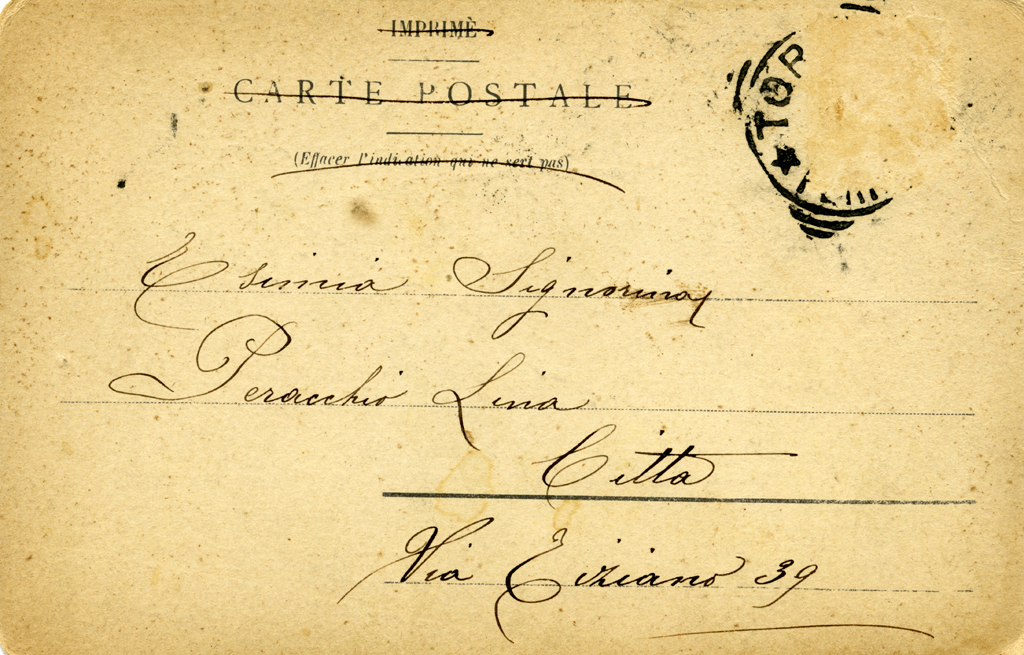 IMPRIMÈ
CARTE POSTALE
(Effacer l'indication qui ne sert pas)
TOR
Esimia Signorina
Peracchio Lina
Citta
Via Tiziano 39